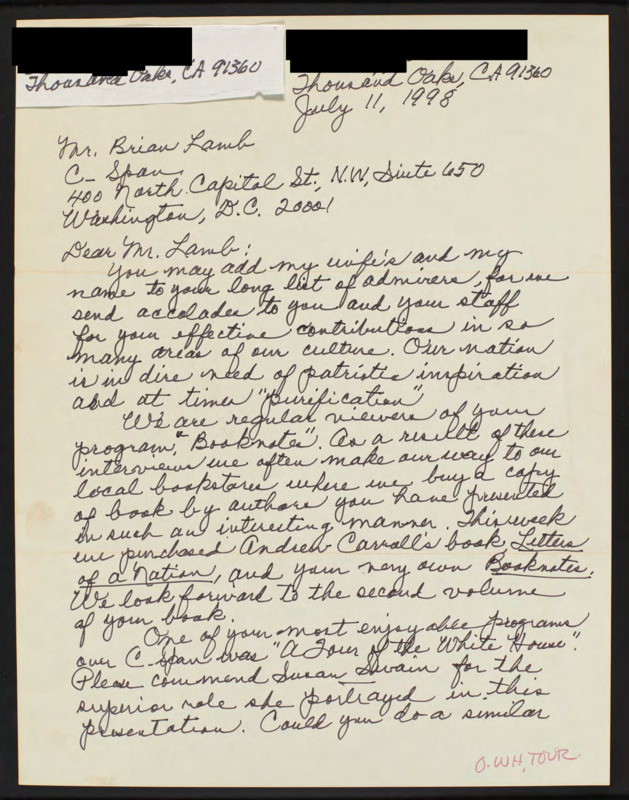 Thousand Oaks, CA 91360
Thousand Oaks, CA 91360
July 11, 1998
Mr. Brian Lamb
C-Span
400 North Capitol St., N.W., Siute 650
Washington, D.C. 20001
Dear Mr. Lamb:
You may add my wife's and my
name to your long list of admirers, for we
send accolades to you and your staff
for your effective contributions in so
many areas of our culture. Our nation
is in dire need of patriotic inspiration
and at times "purification"
We are regular viewers of your
program, "Booknotes". As a result of these
interviews we often make our way to our
local bookstores where we buy a copy
of book by authors you have presented
in such an interesting manner. This week
we purchased Andrew Carroll's book Letters
of a Nation, and your very own Booknotes.
We look forward to the second volume
of your book.
One of your most enjoyable programs
our C-Span was "A Tour of the White House".
Please commend Susan Swain for the
superior role she portrayed in this
presentation. Could you do a similar
O-WH, TOUR